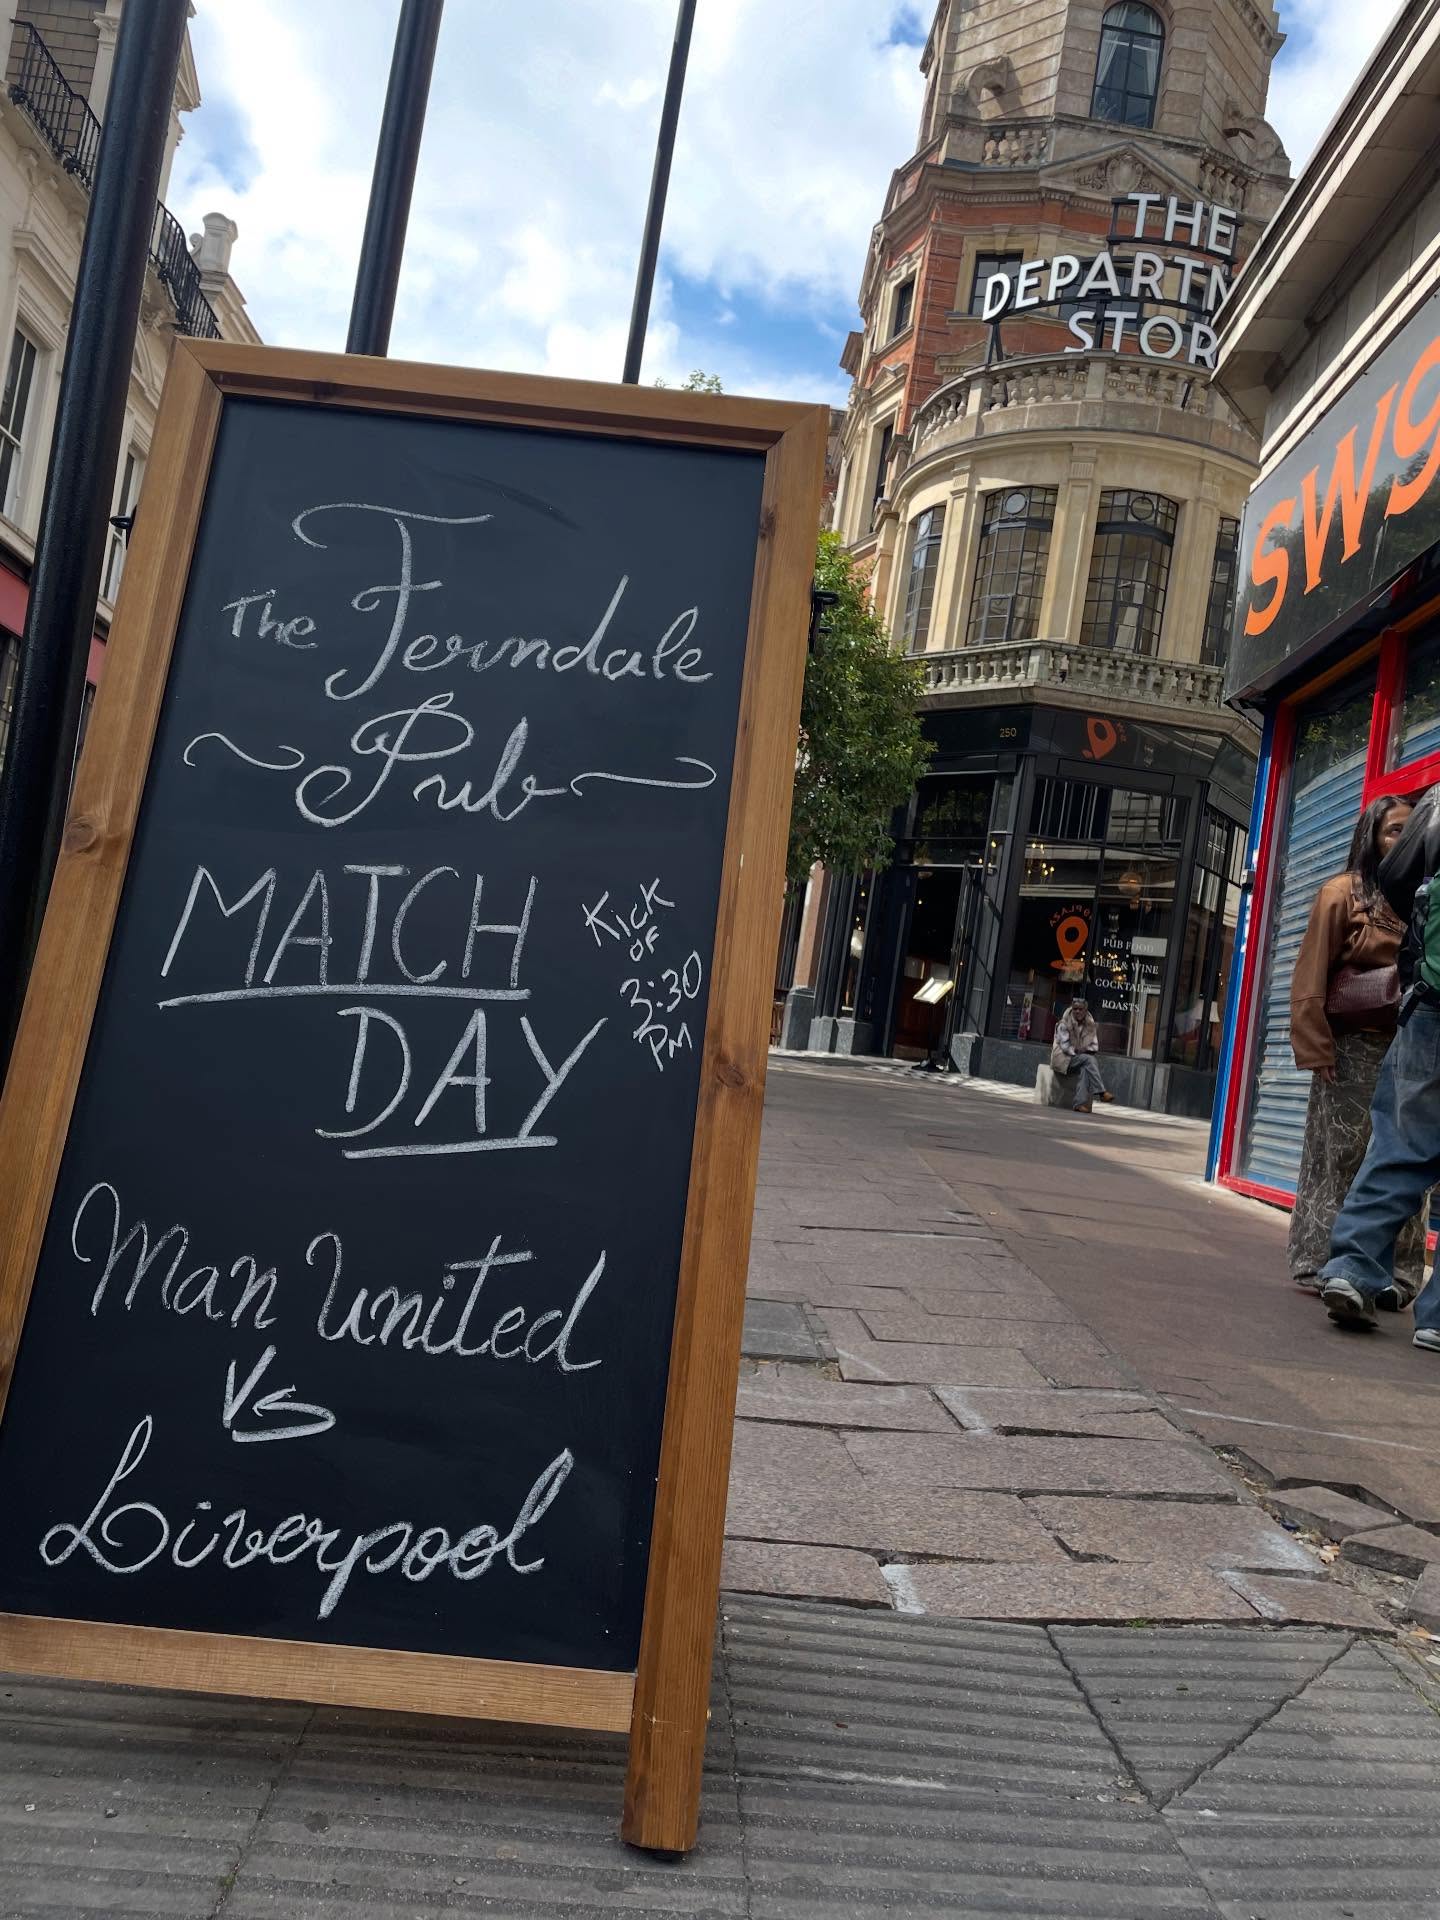 THE
DEPARTM
STOR
SW9
The Ferndale
Pub
MATCH
DAY
Kick
OF
3:30
PM
Man United
Vs
Liverpool
250
PUB FOOD
BEER & WINE
COCKTAILS
ROASTS